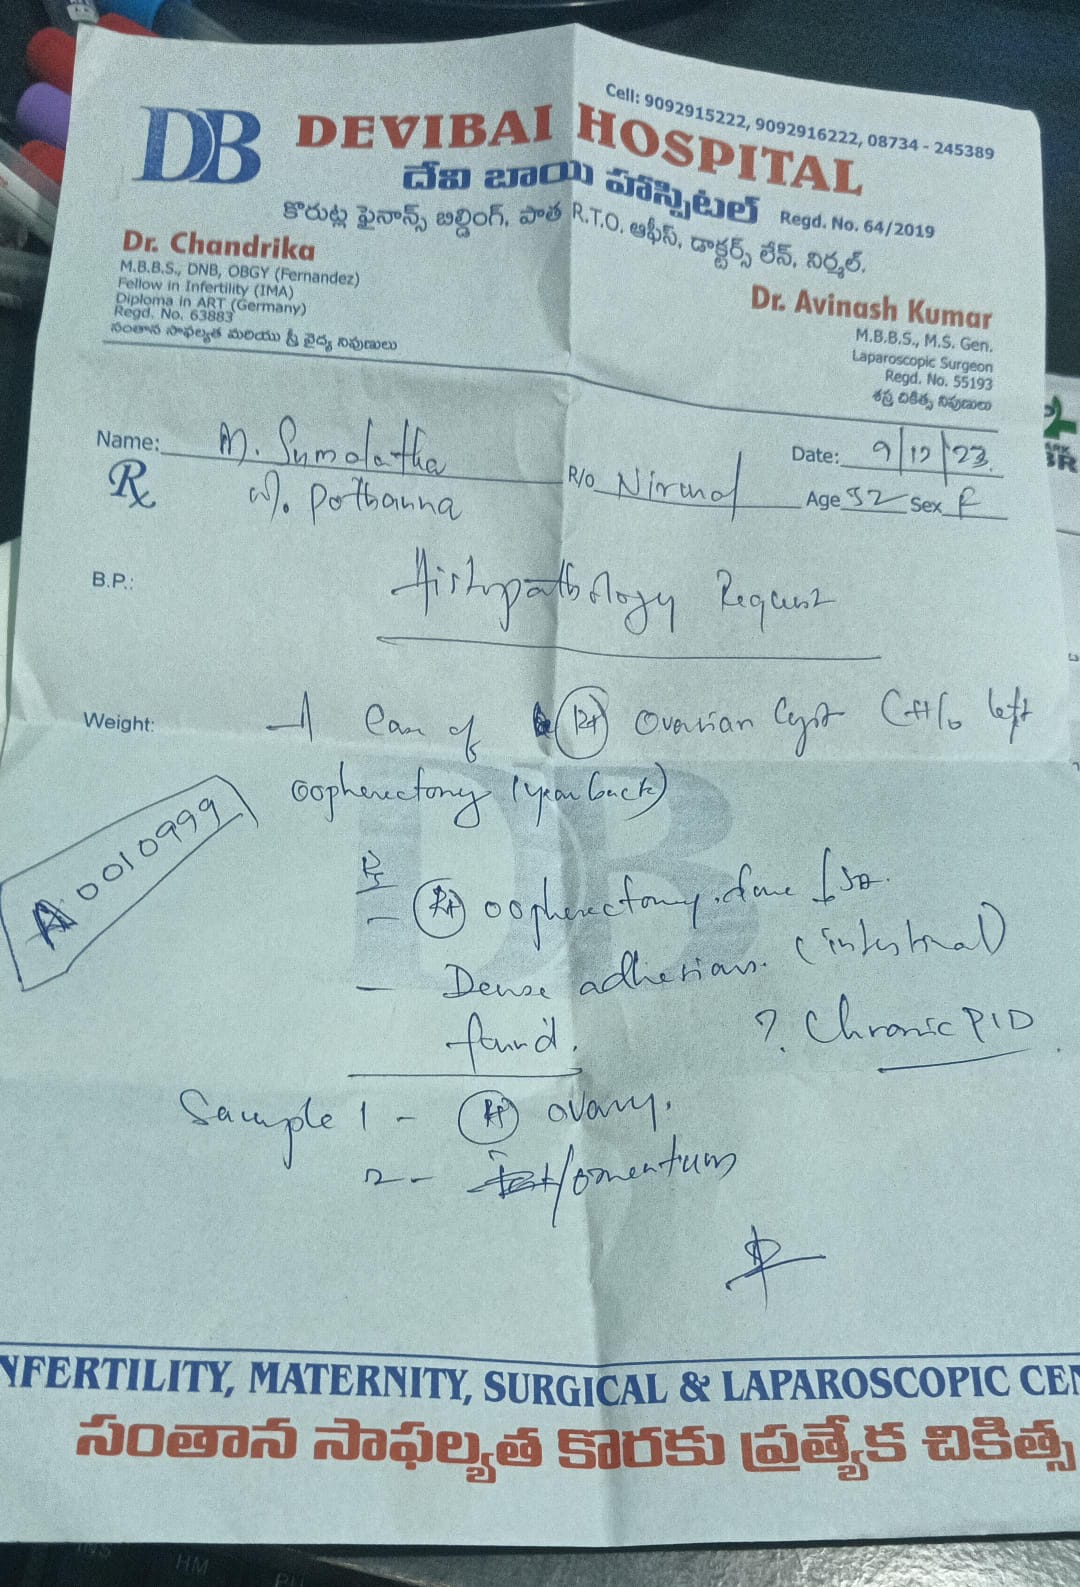 Cell: 9092915222, 9092916222, 08734 - 245389
DB DEVIBAI HOSPITAL
దేవి బాయి హాస్పిటల్ Regd. No. 64/2019
కొరుట్ల ఫైనాన్స్ బిల్డింగ్, పాత R.T.O. ఆఫీస్, డాక్టర్స్ లేన్, నిర్మల్.
Dr. Chandrika
M.B.B.S., DNB, OBGY (Fernandez)
Fellow in Infertility (IMA)
Diploma in ART (Germany)
Regd. No. 63883
సంతాన సాఫల్యత మరియు స్త్రీ వైద్య నిపుణులు
Dr. Avinash Kumar
M.B.B.S., M.S. Gen.
Laparoscopic Surgeon
Regd. No. 55193
శస్త్ర చికిత్స నిపుణులు
Name: M. Sumalatha
W/o. Pothanna
R/o Nirmal
Date: 9/12/23.
Age 52 Sex F
Rx
B.P.:
Histopathology Request
Weight:
A Case of Rt Ovarian Cyst C H/o left
oopherectomy (1 year back)
A0010999
- Rt oopherectomy. done
- Dense adhesions. (intestinal)
found.
? Chronic PID
Sample 1 - Rt ovary.
2 - /omentum
DB
INFERTILITY, MATERNITY, SURGICAL & LAPAROSCOPIC CEN
సంతాన సాఫల్యత కొరకు ప్రత్యేక చికిత్స
HM